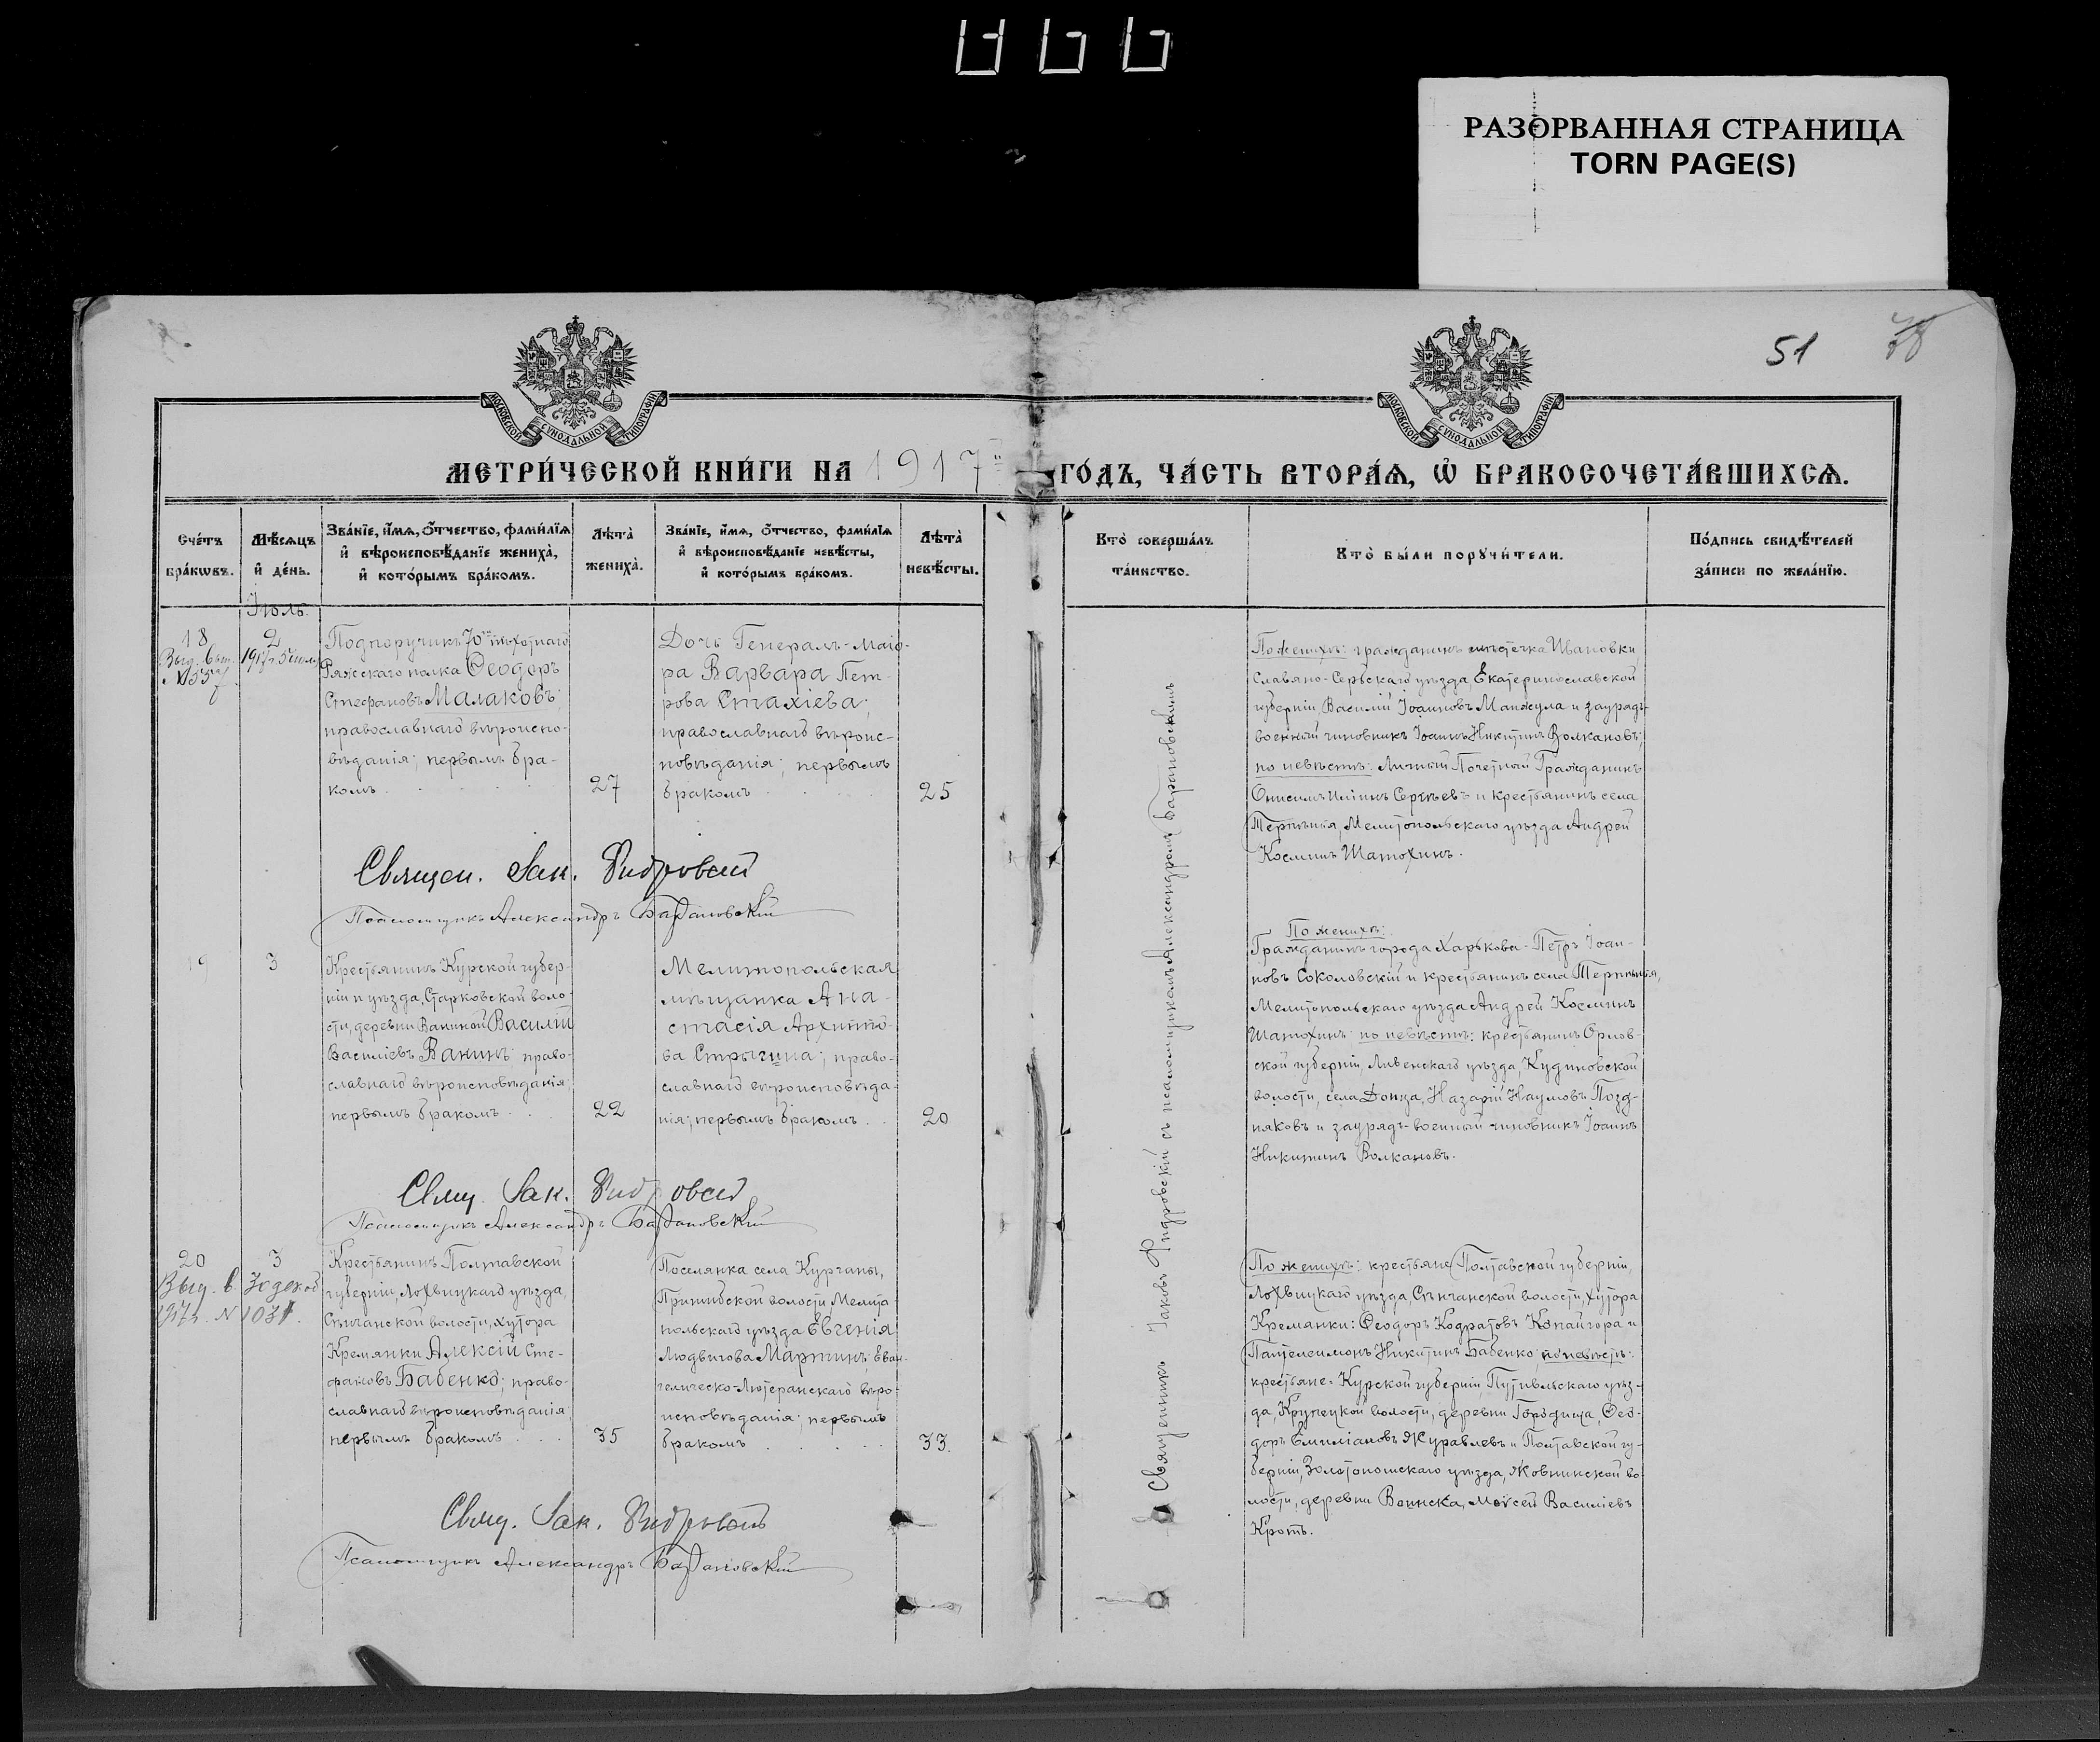 РАЗОРВАННАЯ СТРАНИЦА
TORN PAGE(S)
51
78
МОСКОВСКОЙ СѴНОДАЛЬНОЙ ТИПОГРАФІИ
МОСКОВСКОЙ СѴНОДАЛЬНОЙ ТИПОГРАФІИ
МЕТРИ́ЧЕСКОЙ КНИ́ГИ НА 1917 ГО́ДЪ, ЧА́СТЬ ВТОРА́Ѧ, Ѽ БРАКОСОЧЕТА́ВШИХСѦ.
Сче́тъ бра́кѡвъ.
Мѣ́сяцъ и҆ де́нь.
Зва́нїе, и҆́мѧ, о҆́тчество, фами́лїѧ
и҆ вѣроисповѣ́данїе жениха̀,
и҆ кото́рымъ бра́комъ.
Лѣта̀ жениха̀.
Зва́нїе, и҆́мѧ, о҆́тчество, фами́лїѧ
и҆ вѣроисповѣ́данїе невѣ́сты,
и҆ кото́рымъ бра́комъ.
Лѣта̀ невѣ́сты.
Кто̀ соверша́лъ та́инство.
Кто̀ бы́ли порꙋчи́тели.
По́дпись свидѣ́телей за́писи по жела́нїю.
Іюль.
18
Выд. вып.
№ 557
2
1917 г. 5 іюля
Подпоручикъ 70го пѣхотнаго
Ряжскаго полка Ѳеодоръ
Стефановъ Малаковъ;
православнаго вѣроиспо-
вѣданія; первымъ бра-
комъ
27
Дочь Генералъ-Маіо-
ра Варвара Пет-
рова Стахіева;
православнаго вѣроис-
повѣданія; первымъ
бракомъ
25
По женихѣ: гражданинъ мѣстечка Ивановки
Славяно-Сербскаго уѣзда, Екатеринославской
губерніи, Василій Іоанновъ Манжула и заурядъ-
военный чиновникъ Іоаннъ Никитинъ Волкановъ;
по невѣстѣ: Личный Почетный Гражданинъ
Онисимъ Иліинъ Сергѣевъ и крестьянинъ села
Терпѣнія, Мелитопольскаго уѣзда Андрей
Косминъ Шатохинъ.
Священ. Іак. Фидровскій
Псаломщикъ Александръ Барановскій
19
3
Крестьянинъ Курской губер-
ніи и уѣзда, Старковской воло-
сти, деревни Ваниной Василій
Василіевъ Ванинъ; право-
славнаго вѣроисповѣданія;
первымъ бракомъ
22
Мелитопольская
мѣщанка Ана-
стасія Архипо-
ва Стрыгина; право-
славнаго вѣроисповѣда-
нія; первымъ бракомъ
20
По женихѣ:
Гражданинъ города Харькова - Петръ Іоан-
новъ Соколовскій и крестьянинъ села Терпѣнія,
Мелитопольскаго уѣзда Андрей Косминъ
Шатохинъ; по невѣстѣ: крестьянинъ Орлов-
ской губерніи, Ливенскаго уѣзда, Кудиновской
волости, села Донца, Назарій Наумовъ Позд-
няковъ и заурядъ-военный чиновникъ Іоаннъ
Никитинъ Волкановъ.
Свящ. Іак. Фидровскій
Псаломщикъ Александръ Барановскій
20
Выд. в.
1917 г. № 1031.
3
Крестьянинъ Полтавской
губерніи, Лохвицкаго уѣзда,
Сѣнчанской волости, хутора
Кремянки Алексій Сте-
фановъ Бабенко; право-
славнаго вѣроисповѣданія,
первымъ бракомъ
35
Поселянка села Курчаны,
Пришибской волости, Мелито-
польскаго уѣзда Евгенія
Людвигова Мартинъ; Еван-
гелическо-Лютеранскаго вѣро-
исповѣданія; первымъ
бракомъ
33.
По женихѣ: крестьяне Полтавской губерніи,
Лохвицкаго уѣзда, Сѣнчанской волости, хутора
Кремянки: Ѳеодоръ Кодратовъ Копайгора и
Пантелеимонъ Никитинъ Бабенко; по невѣстѣ:
крестьяне: Курской губерніи, Путивльскаго уѣз-
да, Крупецкой волости, деревни Городища, Ѳео-
доръ Емиліановъ Журавлевъ и Полтавской гу-
берніи, Золотоношскаго уѣзда, Жовнинской во-
лости, деревни Воинска, Моѵсей Василіевъ
Кротъ.
Свящ. Іак. Фидровскій
Псаломщикъ Александръ Барановскій
Священникъ Іаковъ Фидровскій съ псаломщикомъ Александромъ Барановскимъ